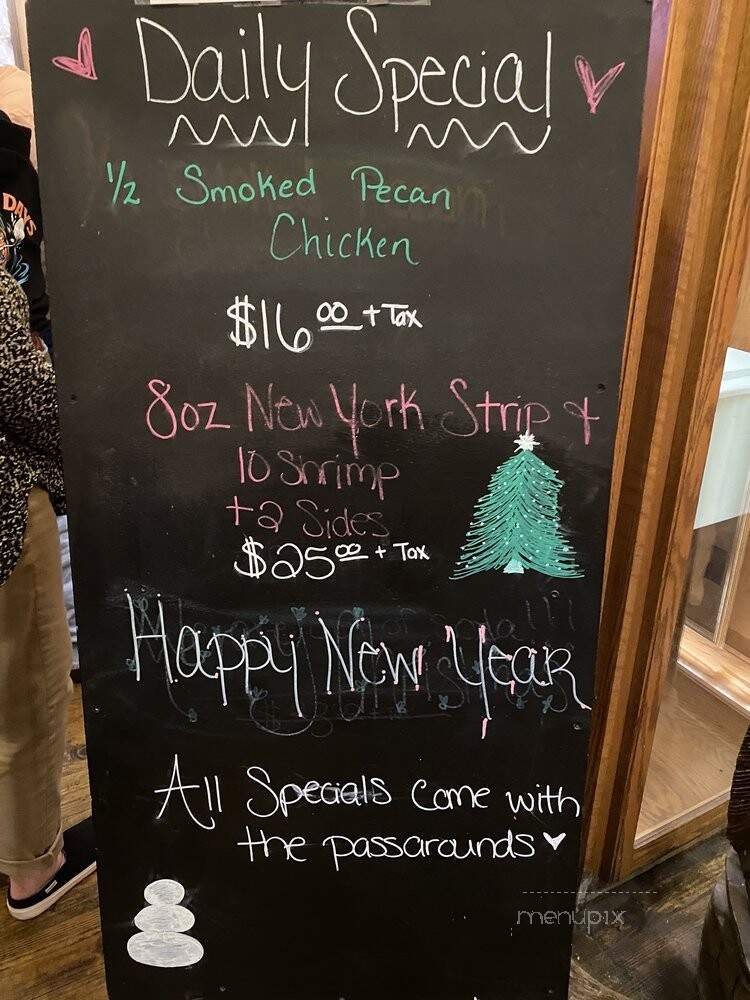 Daily Special
1/2 Smoked Pecan
Chicken
$16 00 + Tax
8oz New York Strip &
10 Shrimp
+2 Sides
$25 00 + Tax
Happy New Year
All Specials come with
the passarounds
menupix